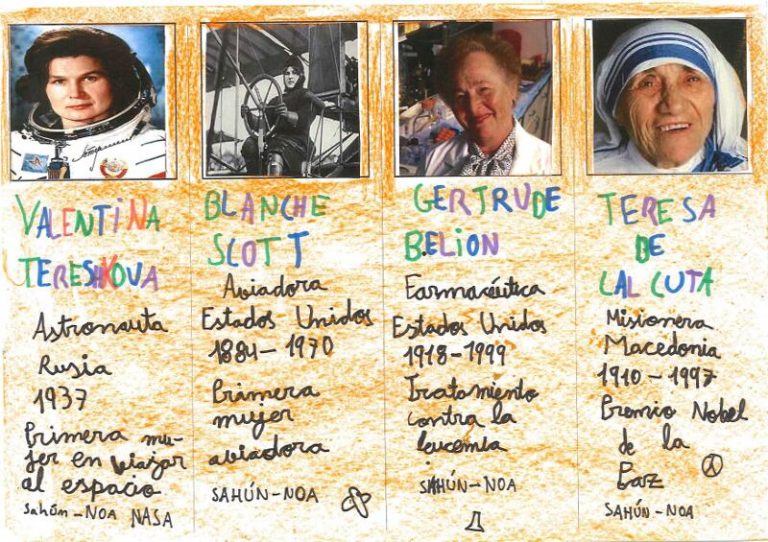 VALENTINA
TERESHKOVA
Astronauta
Rusia
1937
Primera mu-
jer en viajar
al espacio
Sahún-NOA NASA
BLANCHE
SCOTT
Aviadora
Estados Unidos
1884-1970
Primera
mujer
aviadora
SAHÚN-NOA
GERTRUDE
BELION
Farmacéutica
Estados Unidos
1918-1999
Tratamiento
contra la
leucemia
SAHÚN-NOA
TERESA
DE
CALCUTA
Misionera
Macedonia
1910-1997
Premio Nobel
de la
Paz
SAHÚN-NOA